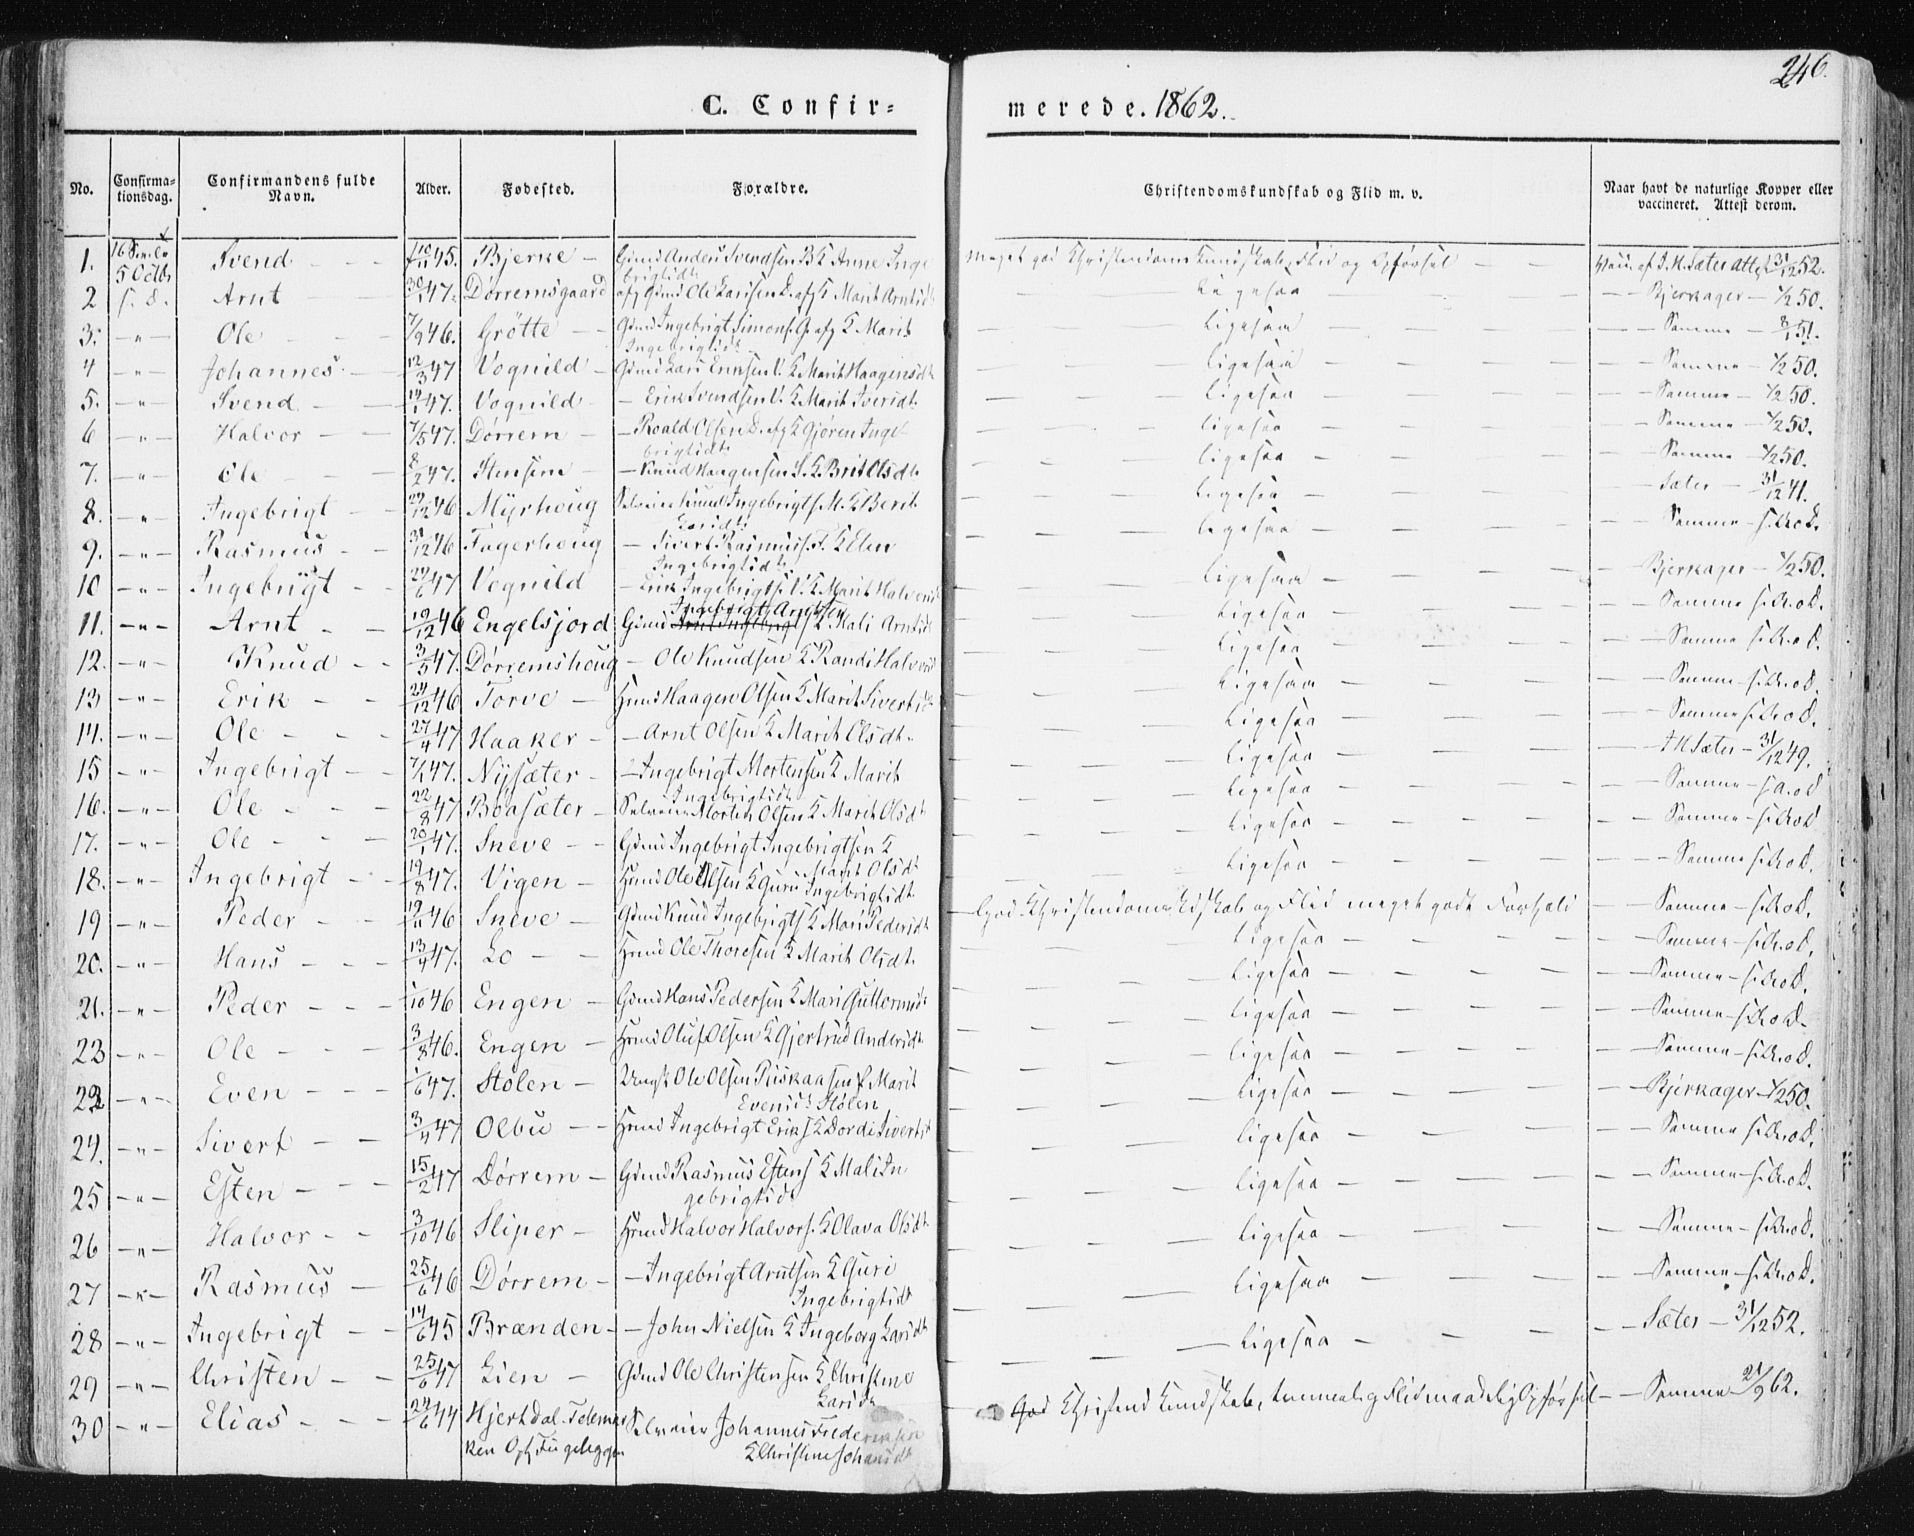 246.
C. Confir=
merede. 1862.
No. Confirma= tionsdag. Confirmandens fulde Navn. Alder. Fødested. Forældre. Christendomskundskab og Flid m. v. Naar havt de naturlige Kopper eller vaccineret. Attest derom.
1. 5 Octb Svend 45. Bjerke Gmd Anders Svendsen B K Anne Inge brigtsdt meget god Christendoms Kundskab, Flid og Opførsel 31/12 52.
2 s. d. Arnt 30/1 47. Dørremsgaard afg Gmd Ole Larssen D. afg K Marit Arntsdt ligesaa Bjerkager 1/2 50.
3. " Ole 7/9 46. Grøtte Gmd Ingebrigt Simons. G. afg K Marit Ingebrigtsdt ligesaa Samme 8/1 51.
4 " Johannes 12/3 47 Vognild Gmd Lars Eriksen V. K Marit Haagensdt ligesaa Samme 1/2 50.
5. " Svend 47. Vognild Erik Svendsen V. K Marit Iversdt. ligesaa Samme 1/2 50.
6 " Halvor 7/5 47. Dørrem Roald Olsen D. afg K Gjøren Inge brigtsdt ligesaa Samme 1/2 50.
7. " Ole 8/2 47. Stensem Knud Haagensen S. K Brit Olsdt ligesaa Samme 1/2 50.
8. " Ingebrigt 29/12 46 Myrhoug Selveier Knud Ingebrigts. M. K Berit Larsdt. ligesaa Sæter 31/12 41.
9. " Rasmus 31/12 46 Fagerhoug Sivert Rasmuss. F. K Elen Ingebrigtsdt. ligesaa Samme s. A. o. D.
10 " Ingebrigt 47 Vognild Erik Ingebrigts. V. K Marit Halvorsdt ligesaa Bjerkager 1/2 50.
11. " Arnt 19/12 46 Engelsjord Gmd Ingebrigt Arntsen K Mali Arntsdt ligesaa Samme s. A. o. D.
12. " Knud 3/5 47. Dørremshoug Ole Knudsen K Randi Halvorsd ligesaa Samme s. A. o. D.
13 " Erik 24/12 46 Torve Hmd Haagen Olsen K Marit Sivertsdt ligesaa Samme s. A. o. D.
14. " Ole 27/4 47 Haaker Arnt Olsen K Marit Olsdt. ligesaa Samme s. A. o. D.
15 " Ingebrigt 7/1 47. Nysæter Ingebrigt Mortensen K Marit Ingebrigtsdt ligesaa J K Sæter 31/12 49.
16. " Ole 22/8 47 Boasæter Selveier Morten Olsen K Marit Olsdt ligesaa Samme s. A. o. D
17. " Ole 20/1 47. Sneve Gmd Ingebrigt Ingebrigtsen K Marit Olsdt ligesaa Samme s. A. o. D
18. " Ingebrigt 19/8 47. Vigen Hmd Ole Olsen K Guru Ingebrigtsdt ligesaa Samme s. A. o. D.
19 " Peder 46 Sneve Gmd Knud Ingebrigts. K Mari Pedersdt God Christendomskdskab og Flid meget godt Forhold Samme s. A. o. D.
20. " Hans 13/4 47. Lo Hmd Ole Thoresen K Marit Olsdt. ligesaa Samme s. A. o. D.
21. " Peder 1/10 46 Engen Gmd Hans Pedersen K Mari Guttormsdt ligesaa Samme s. A. o. D.
23 " Ole 3/8 46. Engen Hmd Oluf Olsen K Gjertrud Andersdt. ligesaa Samme s. A. o. D.
22 " Even 1/6 47. Stølen Ungk Ole Olsen Riskaasen f Marit Evensd: Stølen ligesaa Bjerkager 1/2 50.
24. " Sivert 3/4 47 Olbu Hmd Ingebrigt Eriks. K Dordi Sivertsdt ligesaa Samme s. A. o. D.
25 " Esten 15/2 47 Dørrem Gmd Rasmus Estens. K Mali In gebrigtsdt ligesaa Samme s. A. o. D.
26 " Halvor 3/10 46 Sliper Hmd Halvor Halvors. K Olava Olsdt. ligesaa Samme s. A. o. D.
27 " Rasmus 25/6 46 Dørrem Ingebrigt Arntsen K Guri Ingebrigtsdt ligesaa Samme s. A. o. D.
28 " Ingebrigt 14/6 45 Brænden John Nielsen K Ingeborg Larsdt ligesaa Sæter 31/12 52.
29 " Christen 25/6 47 Lien Gmd Ole Christensen K Christine Larsdt
30 " Elias 44 Hjertdal Telemar ken Selveier Johannes Frederiksen K Christine Johansdt God Christend Kundskab, temmelig Flid maadelig Opførsel Samme 62.